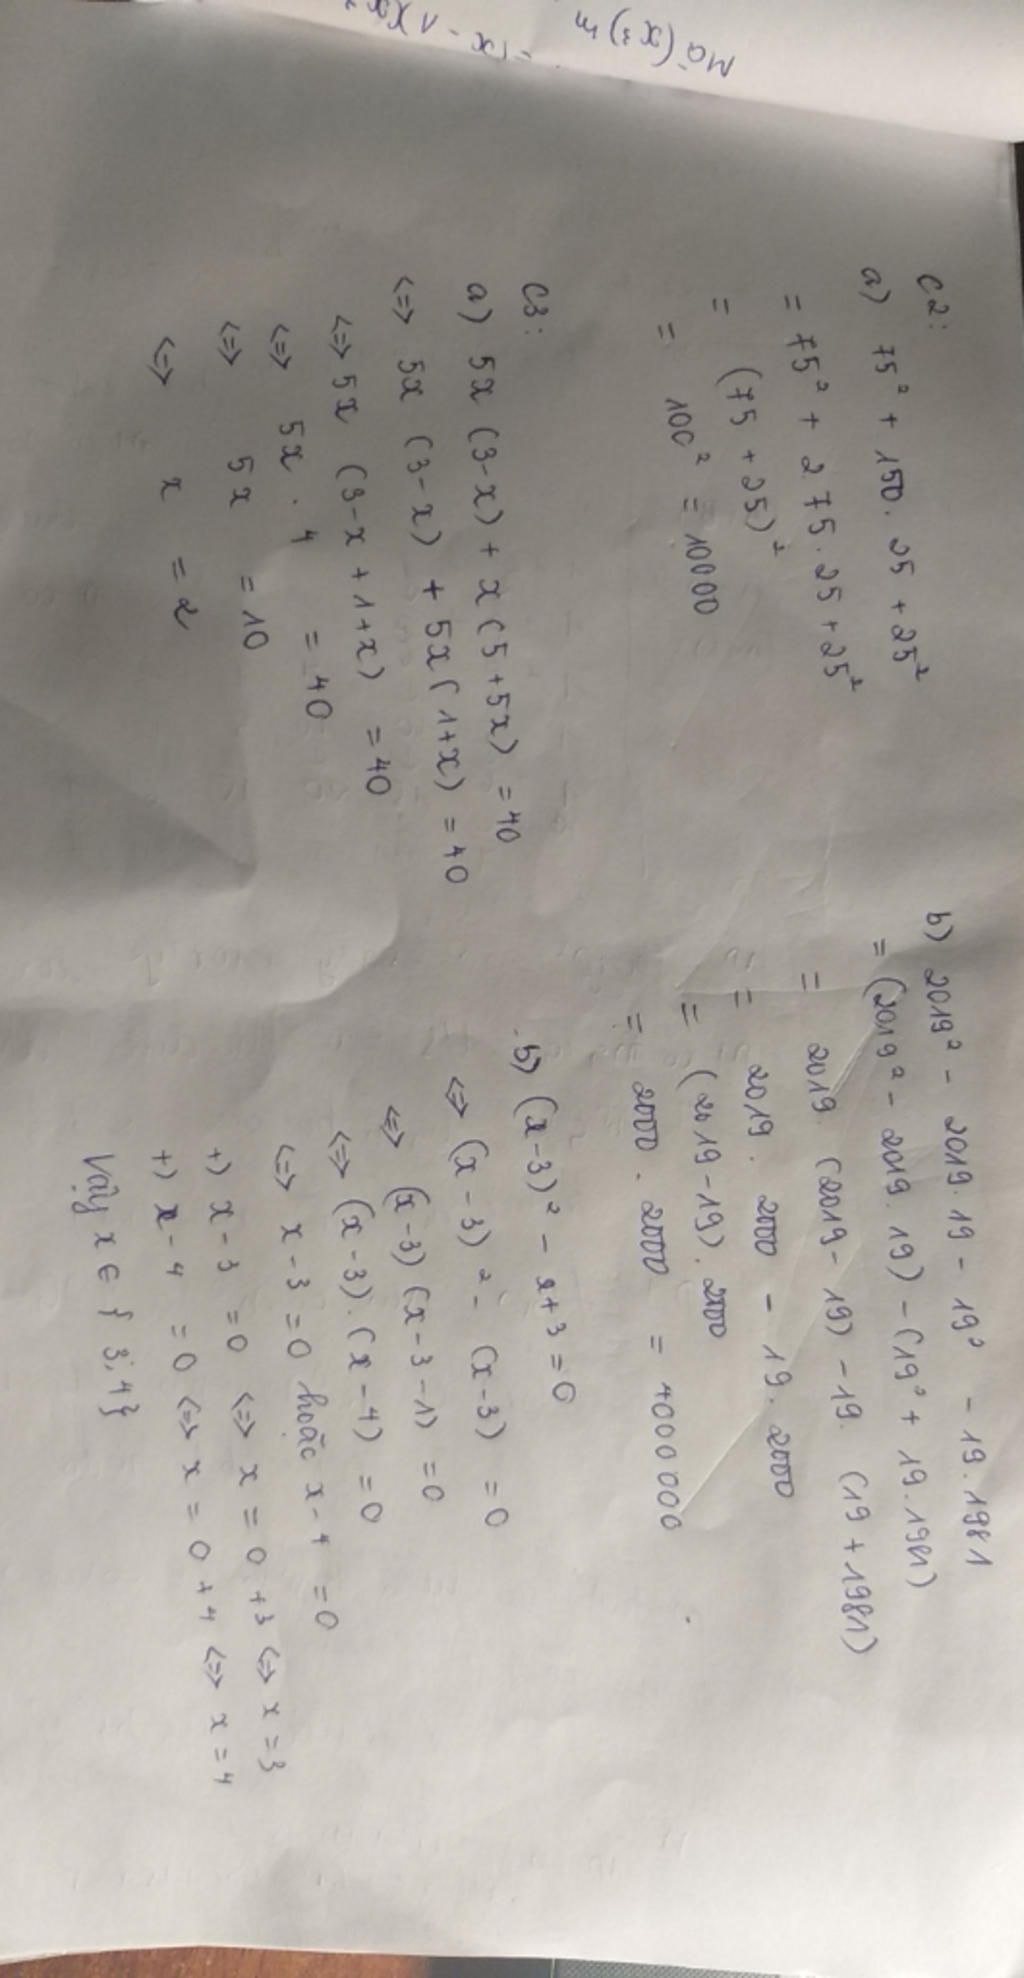 C2:
a) 75² + 150. 25 + 25²
= 75² + 2 75. 25 + 25²
= (75 + 25)²
= 100² = 10000
b) 2019² - 2019. 19 - 19² - 19. 1981
= (2019² - 2019. 19) - (19² + 19. 1981)
= 2019 (2019 - 19) - 19. (19 + 1981)
= 2019. 2000 - 19. 2000
= (2019 - 19). 2000
= 2000. 2000 = 4000 000
C3:
a) 5x (3-x) + x (5+5x) = 40
<=> 5x (3-x) + 5x (1+x) = 40
<=> 5x (3-x + 1+x) = 40
<=> 5x . 4 = 40
<=> 5x = 10
<=> x = 2
b) (x-3)² - x+3 = 0
<=> (x-3)² - (x-3) = 0
<=> (x-3) (x-3-1) = 0
<=> (x-3). (x-4) = 0
<=> x-3 = 0 hoặc x-4 = 0
+) x-3 = 0 <=> x = 0 +3 <=> x = 3
+) x-4 = 0 <=> x = 0 +4 <=> x = 4
Vậy x ∈ { 3; 4}
Mà (x³)m
= (x - 1)